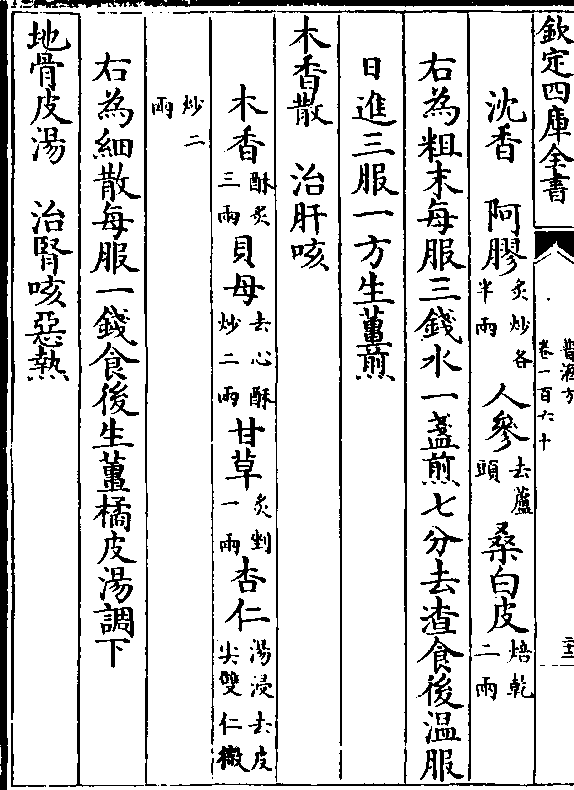 欽定四庫全書
普濟方
卷一百六十
沈香　阿膠炙炒各半兩　人參去蘆頭　桑白皮焙乾二兩
右為粗末每服三錢水一盞煎七分去渣食後温服
日進三服一方生薑煎
木香散　治肝咳
木香酥炙三兩貝母去心酥炒二兩甘草炙剉一兩杏仁湯浸去皮尖雙仁微
炒二兩
右為細散每服一錢食後生薑橘皮湯調下
地骨皮湯　治腎咳惡熱